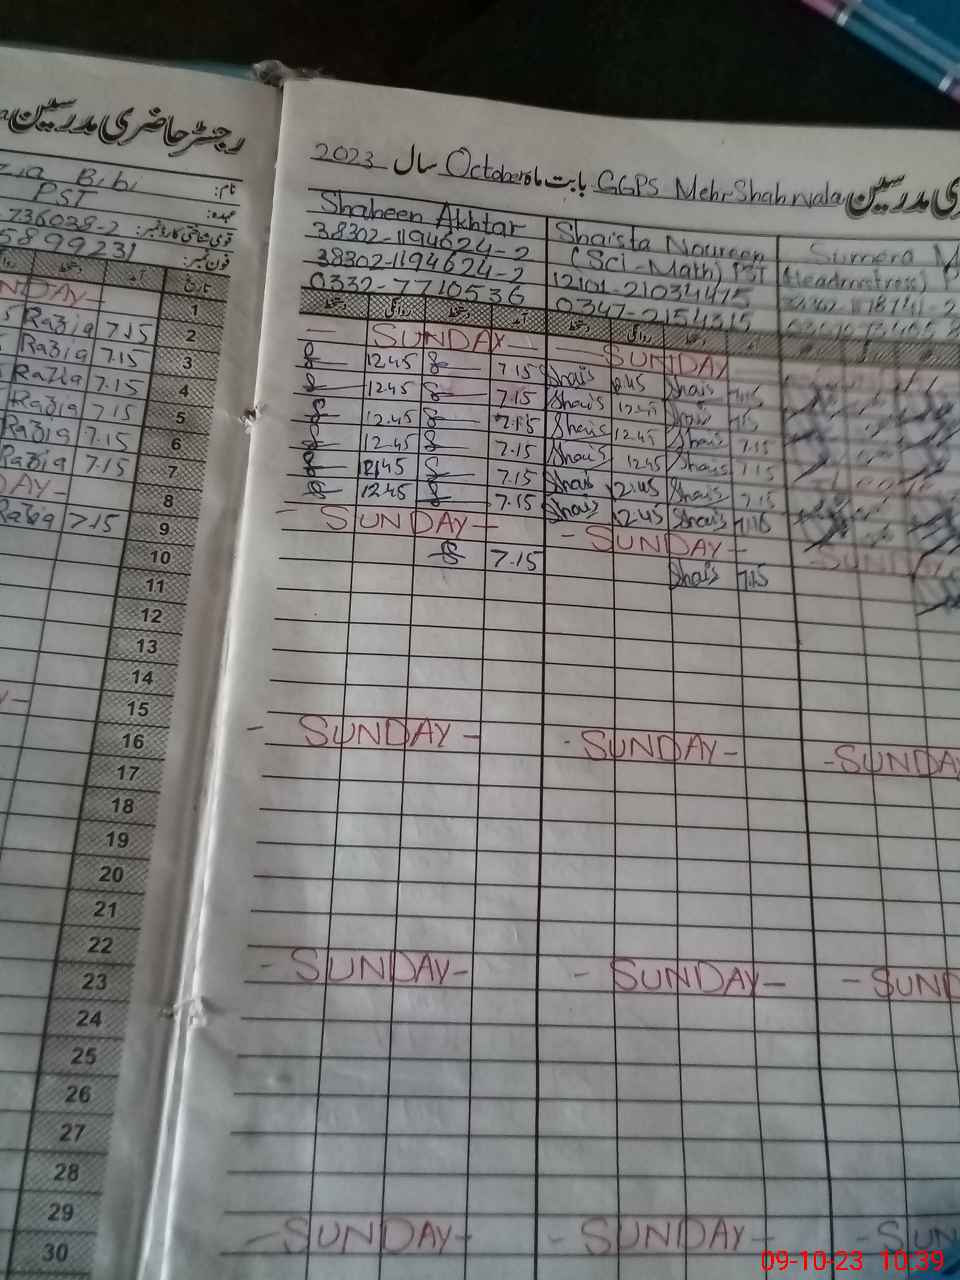 رجسٹر حاضری مدرسین
نام: Bibi
عہدہ: PST
قومی شناختی کارڈ نمبر: 736038-2
فون نمبر: 5899231
تاریخ
1
2
3
4
5
6
7
8
9
10
11
12
13
14
15
16
17
18
19
20
21
22
23
24
25
26
27
28
29
30
Razia 7.15
Razia 7.15
Razia 7.15
Razia 7.15
Razia 7.15
Razia 7.15
Razia 7.15
مدرسین GGPS Mehr Shah wala بابت ماہ October سال 2023
Shaheen Akhtar
38302-1194624-2
38302-1194624-2
0332-7710536
دستخط روانگی دستخط آمد
- SUNDAY -
12.45 7.15
12.45 7.15
12.45 7.15
12.45 7.15
12.45 7.15
12.45 7.15
- SUNDAY -
7.15
- SUNDAY -
- SUNDAY -
- SUNDAY -
Shaista Noureen
(Sci-Math) PST
12101-21034475
0347-2154315
دستخط روانگی دستخط
- SUNDAY
Shais 12.45 Shais 7.15
Shais 12.45 Shais 7.15
Shais 12.45 Shais 7.15
Shais 12.45 Shais 7.15
Shais 12.45 Shais 7.15
Shais 12.45 Shais 7.15
- SUNDAY -
Shais 7.15
- SUNDAY -
- SUNDAY -
- SUNDAY -
Sumera
(Headmistress)
SUNDAY
- SUNDAY
- SUND
- SUN
09-10-23 10:39